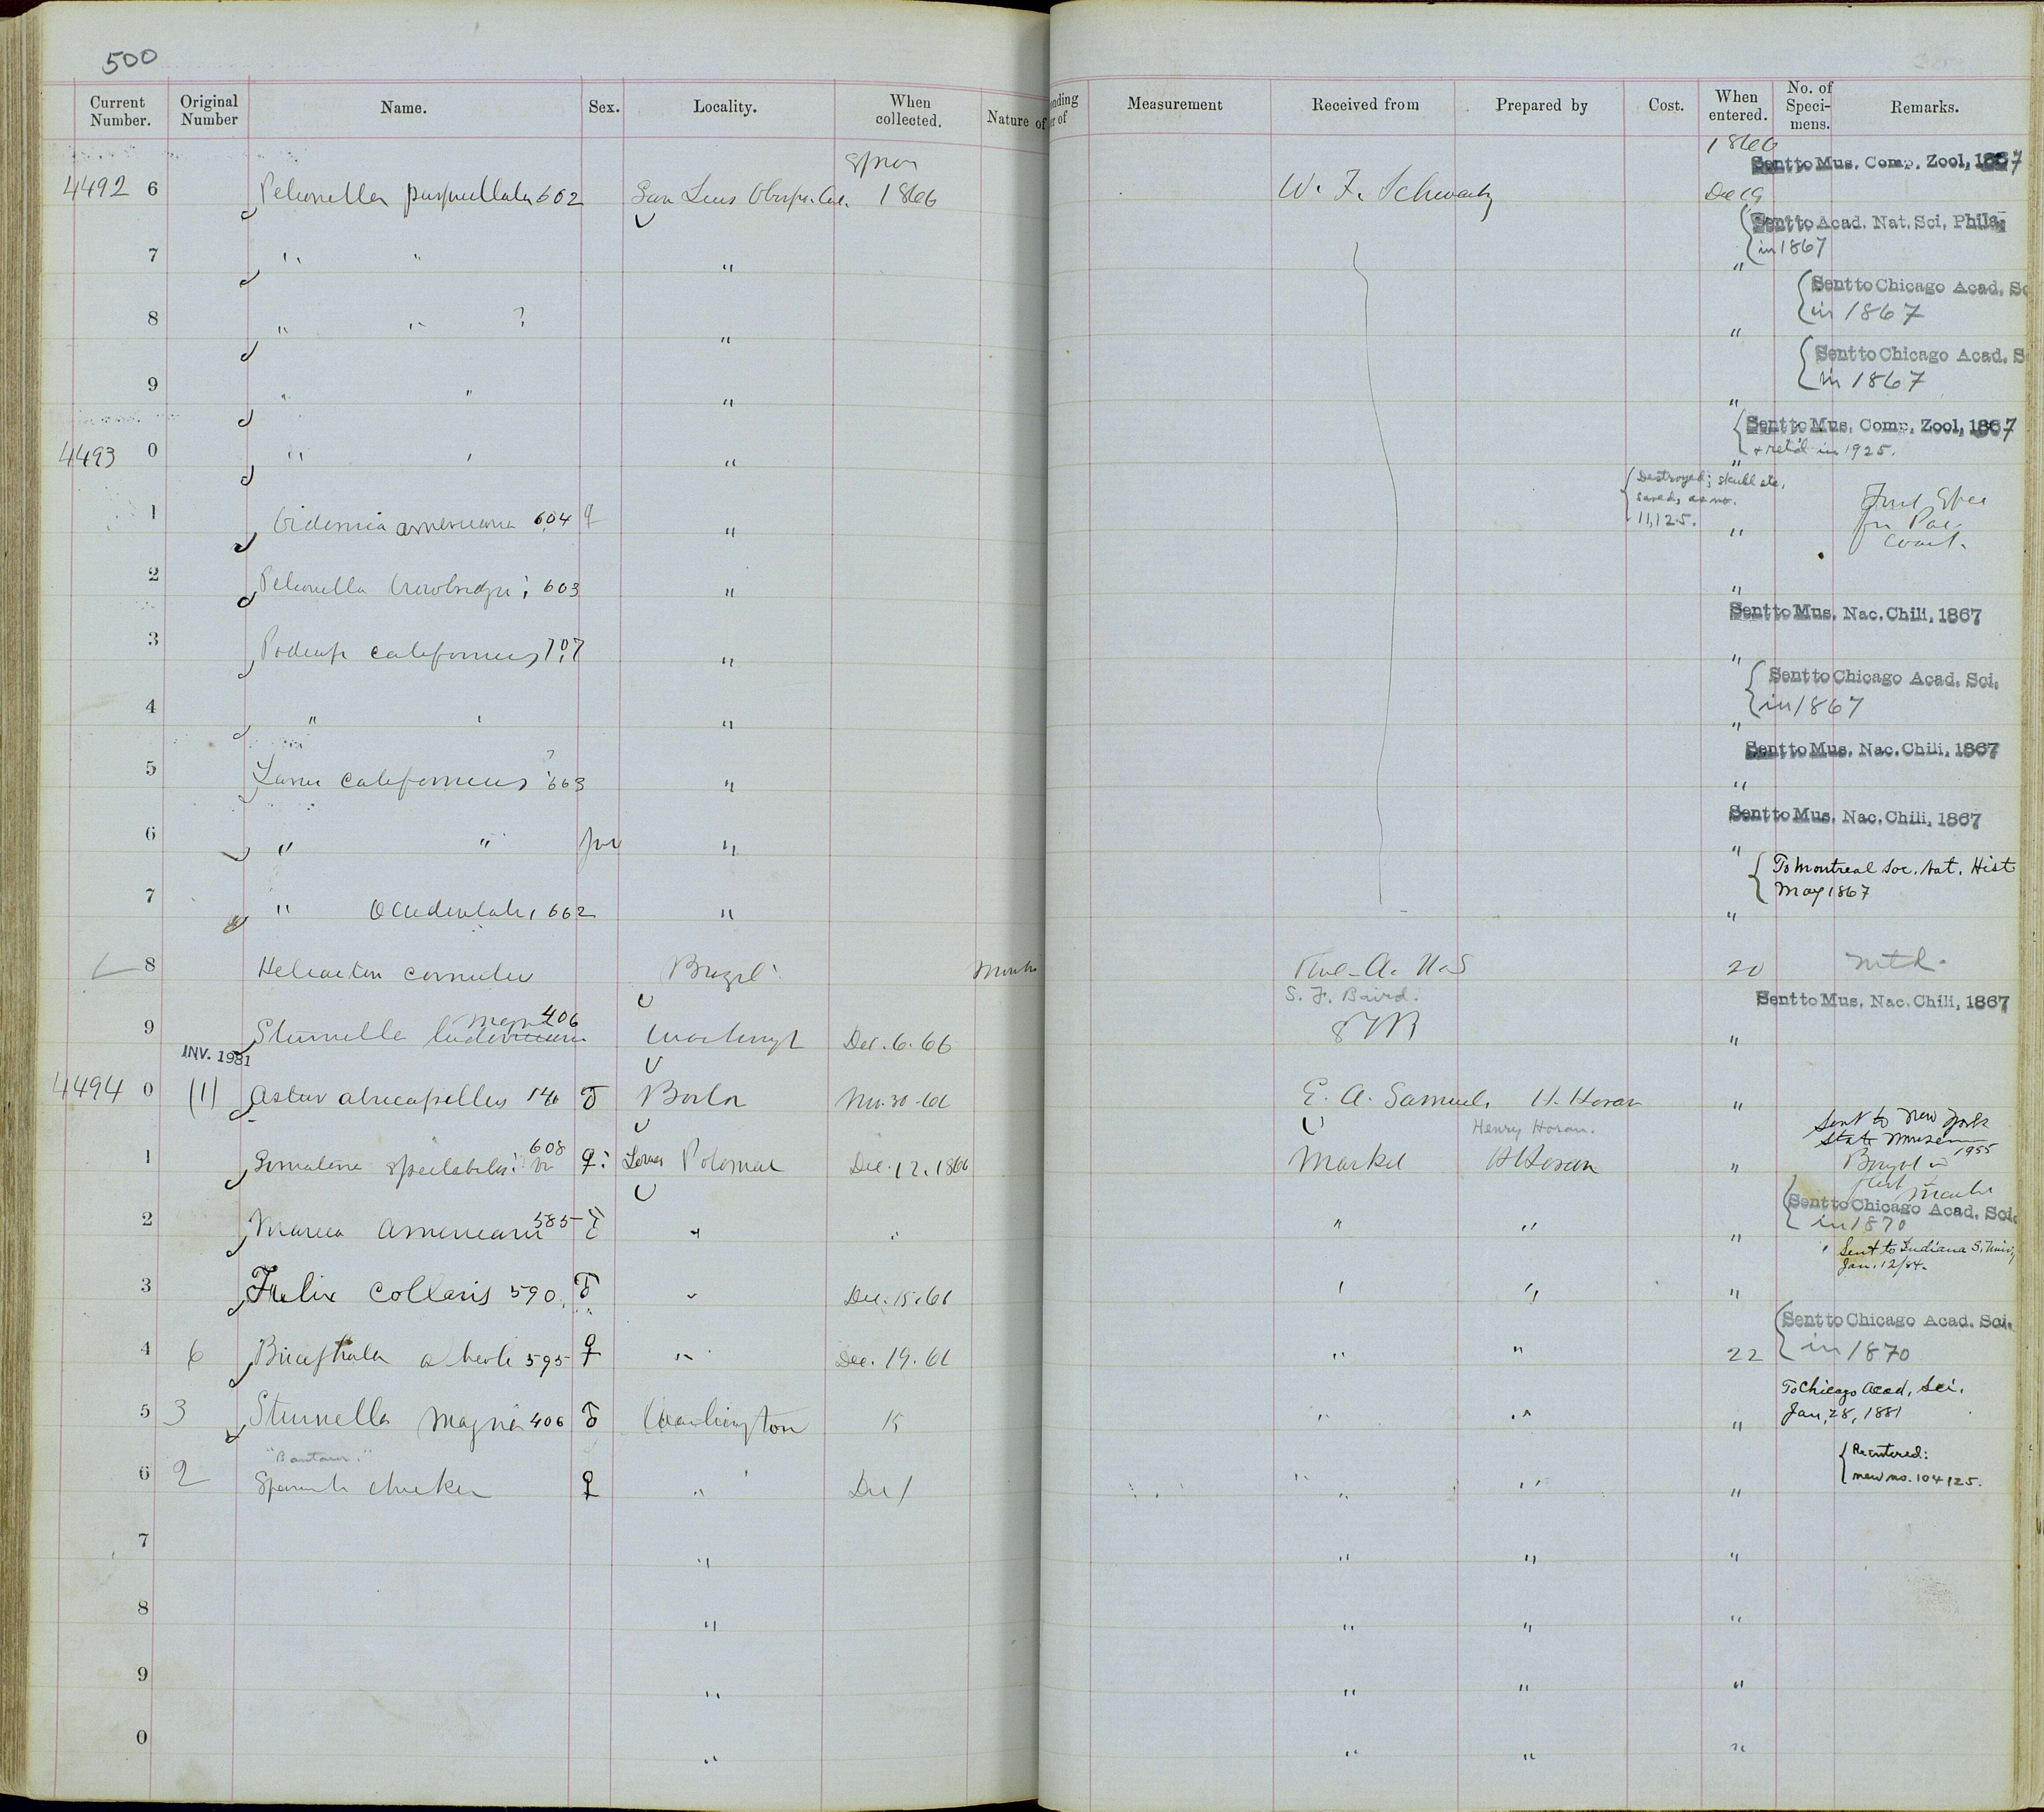 500
Current Number. Original Number Name. Sex. Locality. When collected. Nature of
nding r of Measurement Received from Prepared by Cost. When entered. No. of Specimens. Remarks.
1866
Sent to Mus. Comp. Zool, 1867
4492 6 602 San Luis Obispo. Cal. 1866 W. F. Schwartz Dec 19
Sent to Acad. Nat. Sci. Phila.
in 1867
7 " " " "
Sent to Chicago Acad. Sc
in 1867
8 " " ? " "
Sent to Chicago Acad. S
in 1867
9 " " " "
Sent to Mus. Comp. Zool, 1867
+ ret'd in 1925.
4493 0 " " " "
Destroyed; skull etc.
saved, as no.
11,125.
1 Oidemia americana 604 " "
First Spec
fr Pac.
Coast.
2 Pelionetta 603 " "
Sent to Mus. Nac. Chili, 1867
3 Podiceps californicus 707 " "
Sent to Chicago Acad. Sci.
in 1867
4 " " " "
Sent to Mus. Nac. Chili, 1867
5 Larus californicus ? 663 " "
Sent to Mus. Nac. Chili, 1867
6 " " juv " "
To Montreal Soc. Nat. Hist
May 1867
7 " occidentalis 662 " "
8 Heliactin cornutus Brazil 20 mtd.
S. F. Baird.
Sent to Mus. Nac. Chili, 1867
9 Sturnella magna 406 Dec. 6. 66 S F B "
INV. 1981
4494 0 (1) Astur atricapillus 14 ♂ Boston Nov. 30 - 66 E. A. Samuels H. Horan "
Henry Horan.
Sent to New York
State Museum
1955
1 Somateria spectabilis 608 ♀ Lower Potomac Dec. 12. 1866 Market H Horan "
Bought in
Market
Sent to Chicago Acad. Sci.
in 1870
2 Mareca Americana 585 ♂ " " " " "
Sent to Indiana S. Univ,
Jan. 12/84.
3 Fulix collaris 590 ♂ " Dec. 15. 66 " " "
Sent to Chicago Acad. Sci.
in 1870
4 6 Bucephala albeola 595 ♀ " Dec. 19. 66 " " 22
To Chicago Acad. Sci.
Jan. 28, 1881
5 3 Sturnella magna 406 ♂ Washington 15 " " "
"Bantam."
Reentered:
new no. 104125.
6 2 Spanish chicken ♀ " Dec 1 " " "
7 " " " "
8 " " " "
9 " " " "
0 " " " "